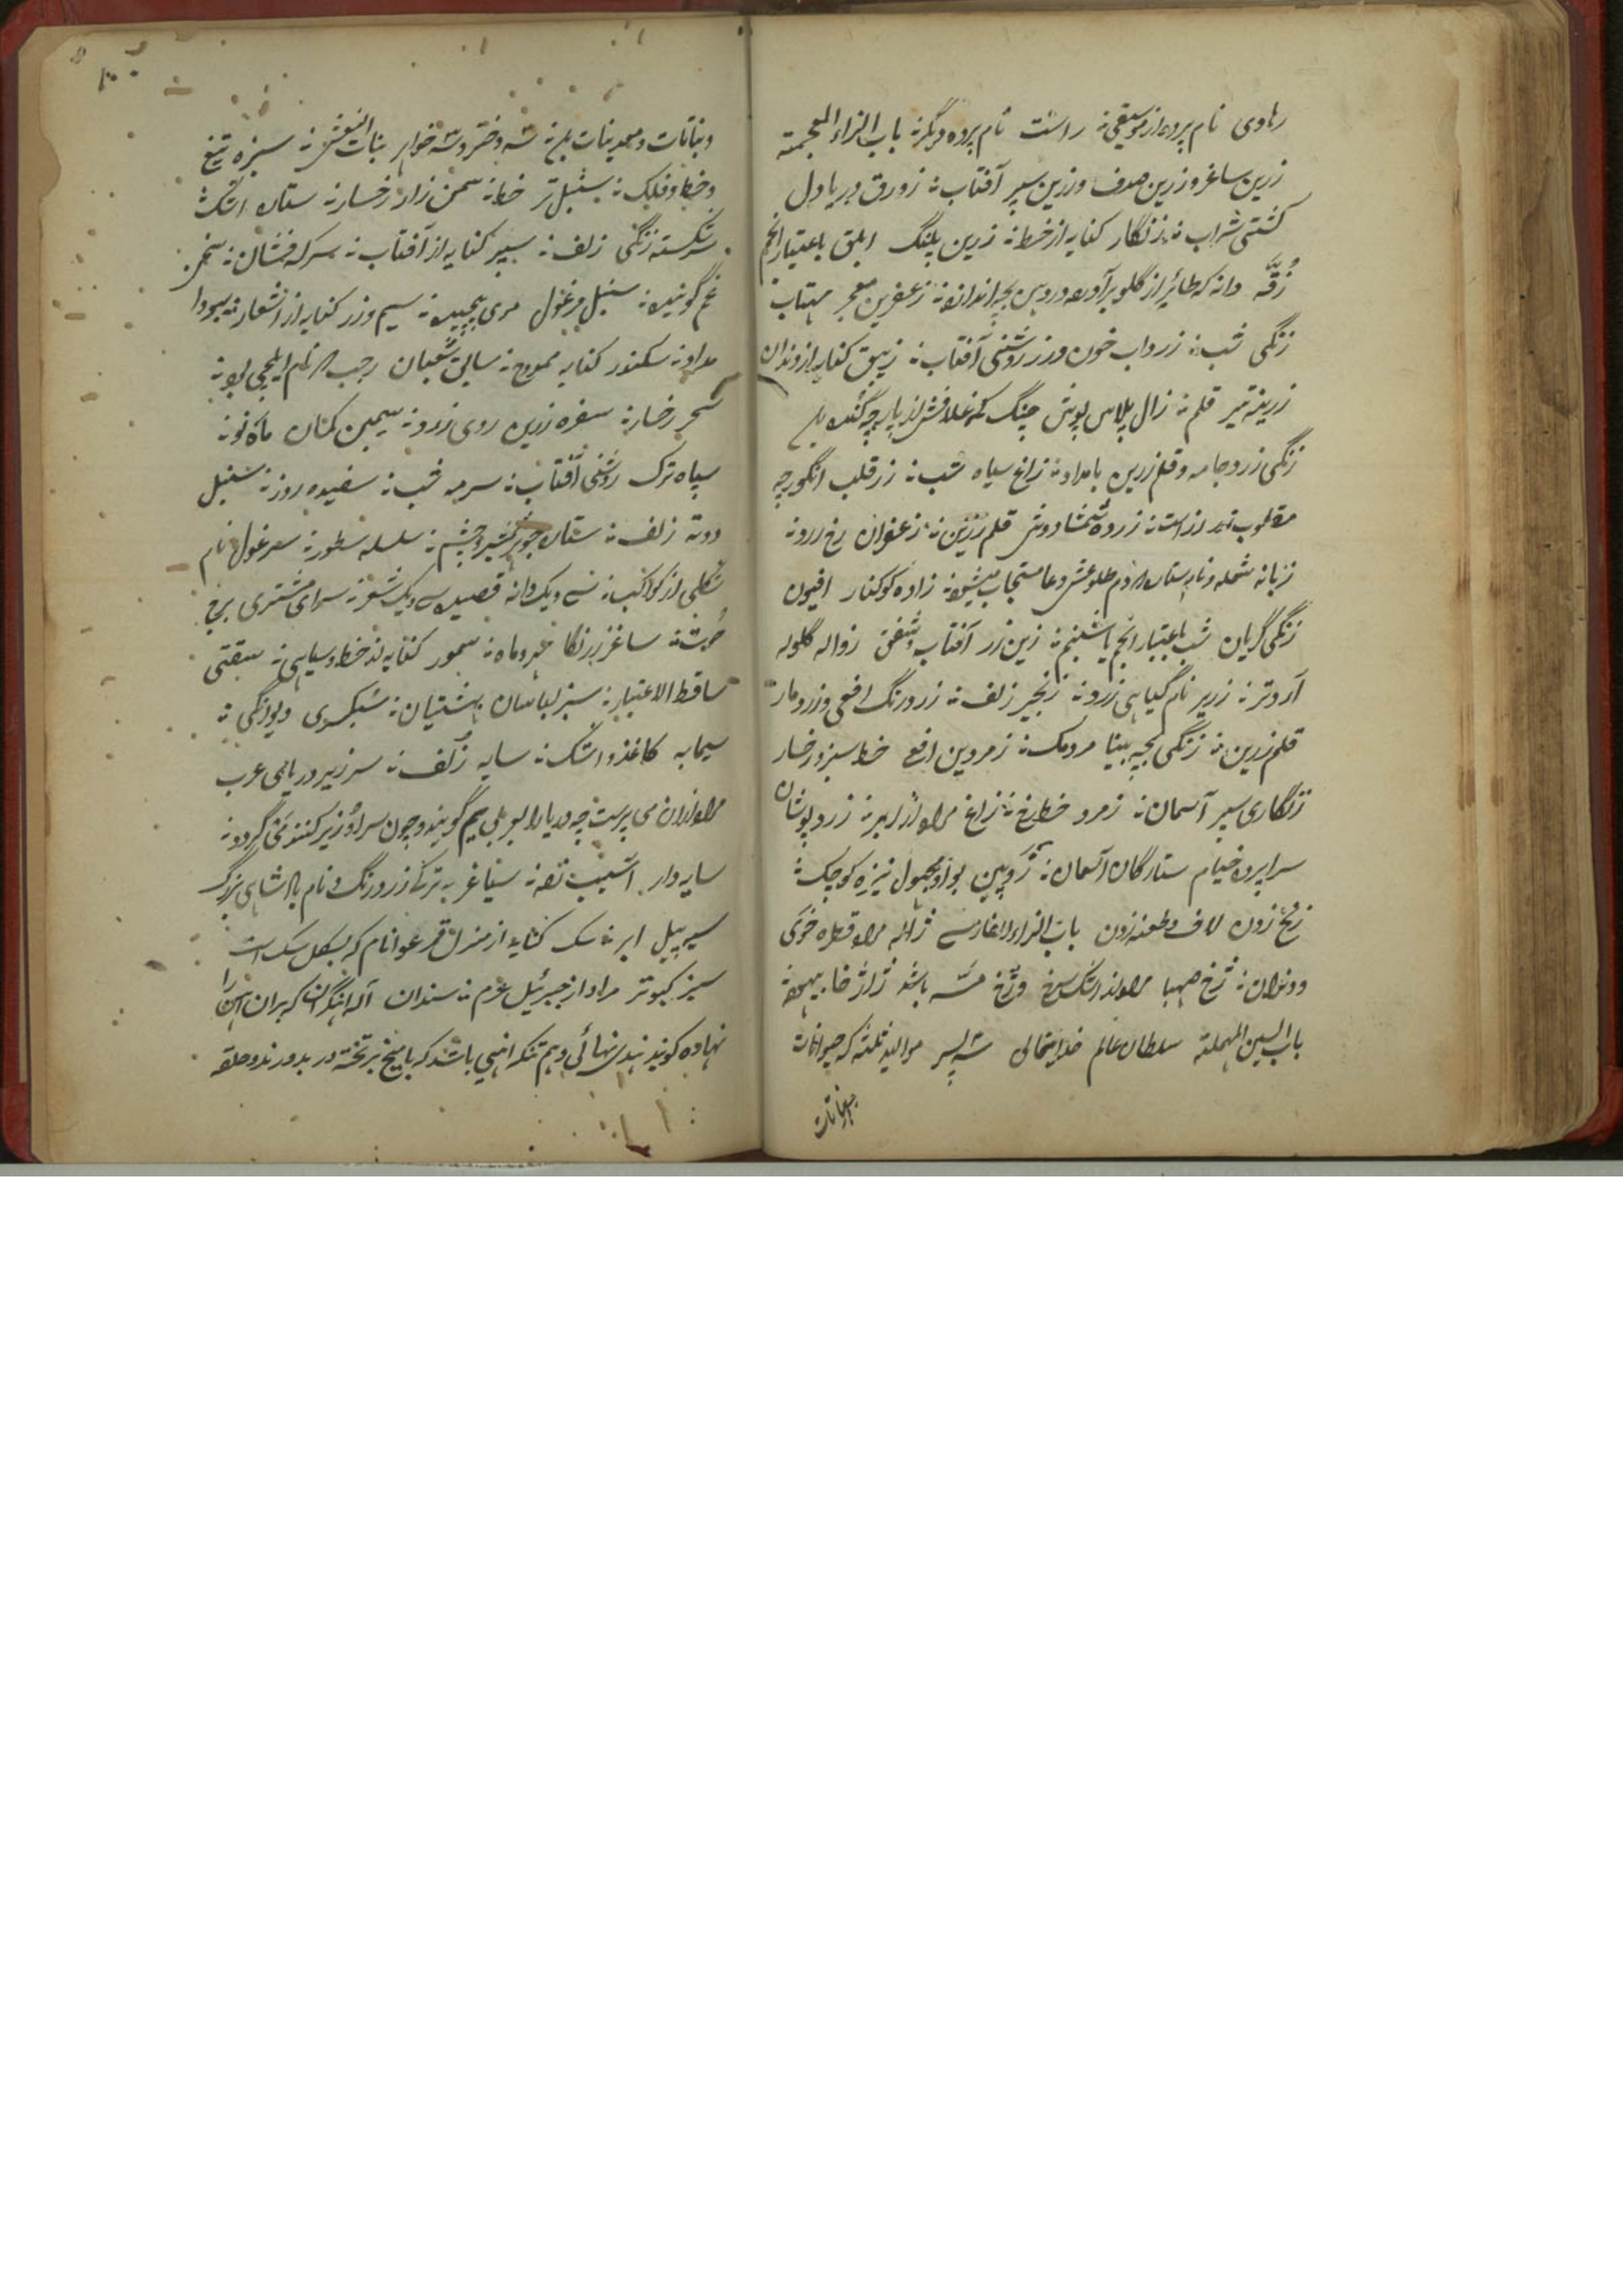 رهاوی نام پرده از موسیقی؞ راست نام پرده دیگر؞ باب الزاء المعجمة
زرین ساغر و زرین صدف و زرین سپر آفتاب؞ زورق دریا دل
کشتی شراب؞ زنگار کنایه از خط؞ زرین پلنگ ابلق باعتبار انجم
زقّه دانه که طائر از گلو برآورده در دهن بچه اندازد؞ زعفرین معجر مهتاب
زنگی شب؞ زرداب خون و زر روشنی آفتاب؞ زیبق کنایه از دندان
زرینه تیر قلم؞ زال پلاس پوش چنگ که غلافش از پارچه گنده
زنگی زرد جامه و قلم زرین بامداد؞ زاغ سیاه شب؞ زر قلب انگور چه
مقلوب رز است؞ زرده شمشاد وش قلم زرین؞ زعفران رخ زرد؞
زبانه شعله و نام ستاره دم طلوعش دعا مستجاب میشود؞ زاده کوکنار افیون
زنگی گریان شب باعتبار انجم یا شبنم؞ زین زر آفتاب و شفق زواله گلوله
آرد تر؞ زریر نام گیاهی زرد؞ زنجیر زلف؞ زرد رنگ افعی و زرد مار
قلم زرین؞ زنگی بچه بینا مردمک؞ زمردین افعی خط سبز رخسار
زنگاری سپر آسمان؞ زمرد خط رخ؞ زاغ مراد از ابر؞ زرد پوشان
سراپرده خیام ستارگان آسمان؞ زوپین بواو مجهول نیزه کوچک؞
زنخ زدن لاف و طعنه زدن باب الزاء الفارسی ژاله مراد قطره خوی
و دندان؞ ژخ صهبا مراد از اشک سرخ و ژخ مسّه باشد ژاژ خا بیهوده
باب السین المهملة سلطان عالم خدایتعالی سه پسر موالید ثلثه که حیوانات
و نباتات و معدنیات بلغ؞ سه دختر و سه خواهر بنات النعش؞ سبزه تیغ
و خط و فلک؞ سنبل تر خط؞ سمن زار رخسار؞ ستاره اشک؞
سرشکسته زنگی زلف؞ سپر کنایه از آفتاب؞ سرکه فشان؞ سخن
غم گوینده؞ سنبل مرغول موی پیچیده؞ سیم و زر کنایه از اشعار؞ سودا
مداد؞ سکندر کنایه ممدوح؞ سابق شعبان رجب نام ایلچی بود؞
سحر رخسار؞ سفره زرین روی زرد؞ سیمین کمان ماه نو؞
سپاه ترک روشنی آفتاب؞ سرمه شب؞ سفیده روز؞ سنبل
دوته زلف؞ ستاره چشم؞ سلسله سطور؞ سرغول نام
شکلی از کواکب؞ سی و یک دانه قصیده سی و یک شعر؞ سرای مشتری برج
حوت؞ ساغر زرنگار مهر و ماه؞ سمور کنایه از خط و سیاهی؞ سبقتی
ساقط الاعتبار؞ سبز لباسان بهشتیان؞ سبکسری دیوانگی؞
سیمابه کاغذ و اشک؞ سایه زلف؞ سر زیر دریای عرب
مراد از آن می پرست چه دریا را بعربی یم گویند و چون سر او زیر کنند می گردد؞
سایه دار آسیب تفه؞ سیناغر به ترکی زرد رنگ و نام پادشاهی بزرگ
سپر پیل ابر؞ سک کنایه از منزل قمر عوا نام که بشکل سک است
سبز کبوتر مراد از جبرئیل عم؞ سندان آله آهنگران که بران آهن را
نهاده کوبند بندی نهائی و هم تنکه آهنی باشد که با میخ بر تخته در بدوزند و حلقه